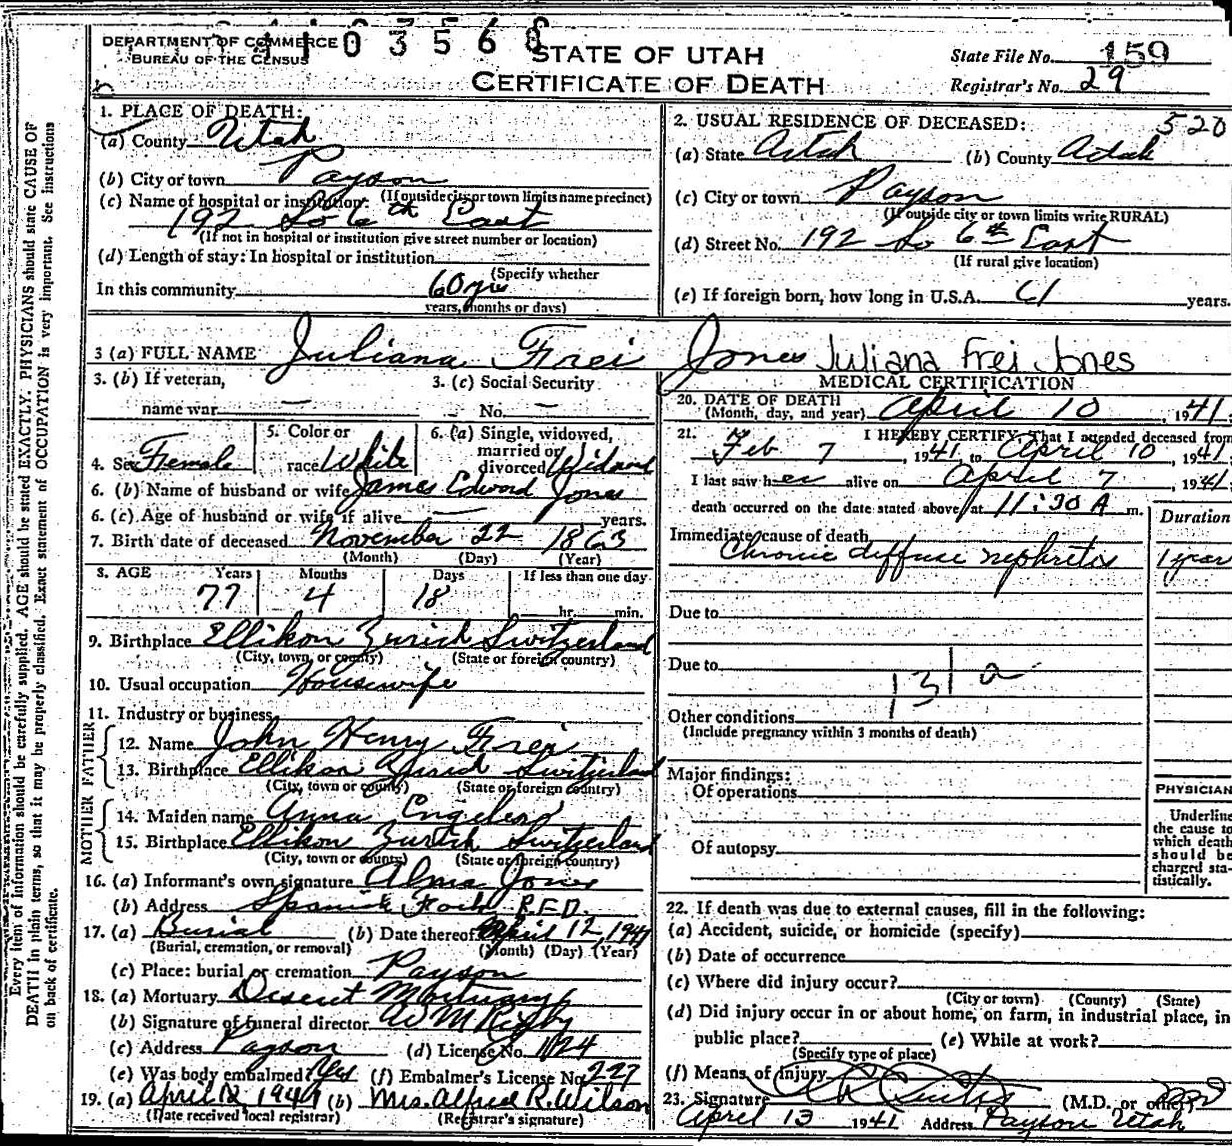 DEPARTMENT OF COMMERCE
BUREAU OF THE CENSUS
4103568
STATE OF UTAH
CERTIFICATE OF DEATH
State File No. 159
Registrar's No. 29
1. PLACE OF DEATH:
(a) County Utah
(b) City or town Payson
(If outside city or town limits name precinct)
(c) Name of hospital or institution:
192 So 6th East
(If not in hospital or institution give street number or location)
(d) Length of stay: In hospital or institution
(Specify whether
In this community 60 yrs
years, months or days)
2. USUAL RESIDENCE OF DECEASED: 520
(a) State Utah (b) County Utah
(c) City or town Payson
(If outside city or town limits write RURAL)
(d) Street No. 192 So 6th East
(If rural give location)
(e) If foreign born, how long in U.S.A. 61 years.
3 (a) FULL NAME Juliana Frei Jones Juliana Frei Jones
3. (b) If veteran,
name war —
3. (c) Social Security
No. —
4. Sex Female
5. Color or
race White
6. (a) Single, widowed,
married or
divorced Widowed
6. (b) Name of husband or wife James Edward Jones
6. (c) Age of husband or wife if alive — years.
7. Birth date of deceased November 22 1863
(Month) (Day) (Year)
8. AGE Years Months Days If less than one day
77 4 18 hr. min.
9. Birthplace Ellikon Zurich Switzerland
(City, town, or county) (State or foreign country)
10. Usual occupation Housewife
11. Industry or business
FATHER
12. Name John Henry Frei
13. Birthplace Ellikon Zurich Switzerland
(City, town or county) (State or foreign country)
MOTHER
14. Maiden name Anna
15. Birthplace Ellikon Zurich Switzerland
(City, town or county) (State or foreign country)
16. (a) Informant's own signature Alma Jones
(b) Address Spanish Fork R.F.D.
17. (a) Burial (b) Date thereof April 12, 1941
(Burial, cremation, or removal) (Month) (Day) (Year)
(c) Place: burial or cremation Payson
18. (a) Mortuary Deseret Mortuary
(b) Signature of funeral director W M Rigby
(c) Address Payson (d) License No. 1124
(e) Was body embalmed? Yes (f) Embalmer's License No. 227
19. (a) April 12 1941 (b) Mrs. Alfred R. Wilson
(Date received local registrar) (Registrar's signature)
MEDICAL CERTIFICATION
20. DATE OF DEATH
(Month, day, and year) April 10, 1941
21. I HEREBY CERTIFY, That I attended deceased from
Feb 7, 1941 to April 10, 1941
I last saw her alive on April 7, 1941
death occurred on the date stated above, at 11:30 A m.
Duration
Immediate cause of death
Chronic diffuse nephritis 1 year
Due to
Due to
131 a
Other conditions
(Include pregnancy within 3 months of death)
Major findings:
Of operations
Of autopsy
PHYSICIAN
Underline
the cause to
which death
should be
charged sta-
tistically.
22. If death was due to external causes, fill in the following:
(a) Accident, suicide, or homicide (specify)
(b) Date of occurrence
(c) Where did injury occur?
(City or town) (County) (State)
(d) Did injury occur in or about home, on farm, in industrial place, in
public place? (e) While at work?
(Specify type of place)
(f) Means of injury
23. Signature Curtis (M.D. or other)
April 13 1941 Address Payson Utah
Every item of information should be carefully supplied. AGE should be stated EXACTLY. PHYSICIANS should state CAUSE OF
DEATH in plain terms, so that it may be properly classified. Exact statement of OCCUPATION is very important. See instructions
on back of certificate.